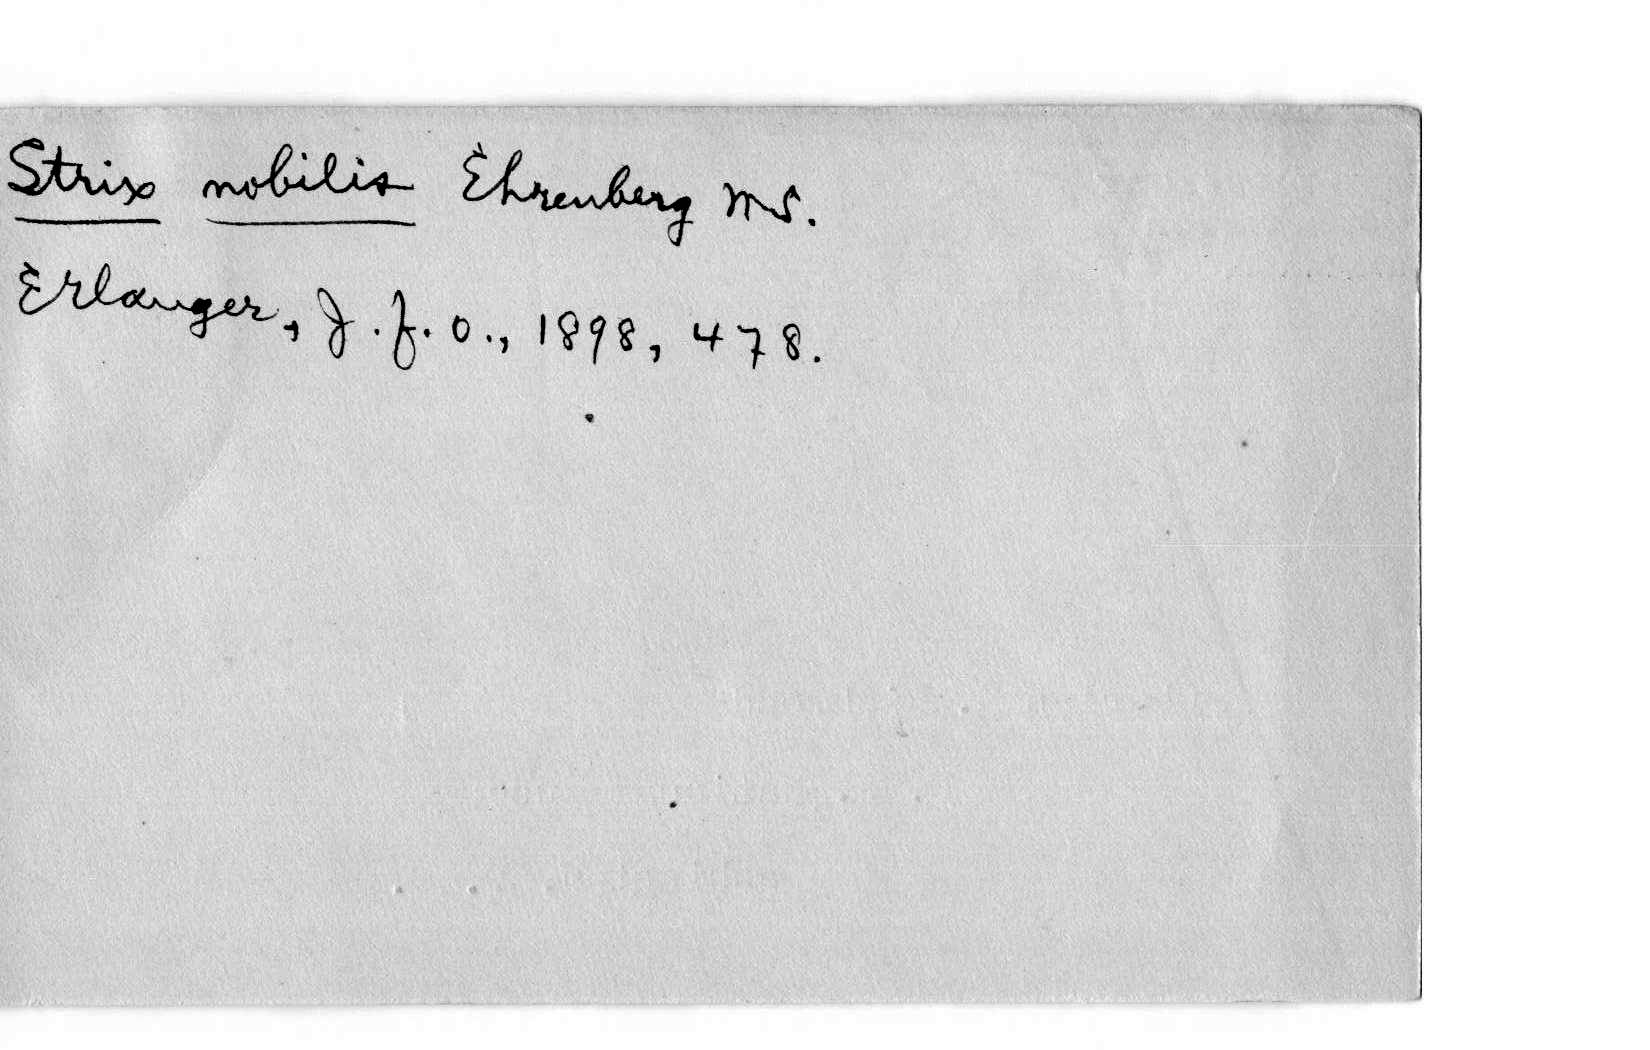 Strix nobilis Ehrenberg MS.
Erlanger, J.f.O., 1898, 478.